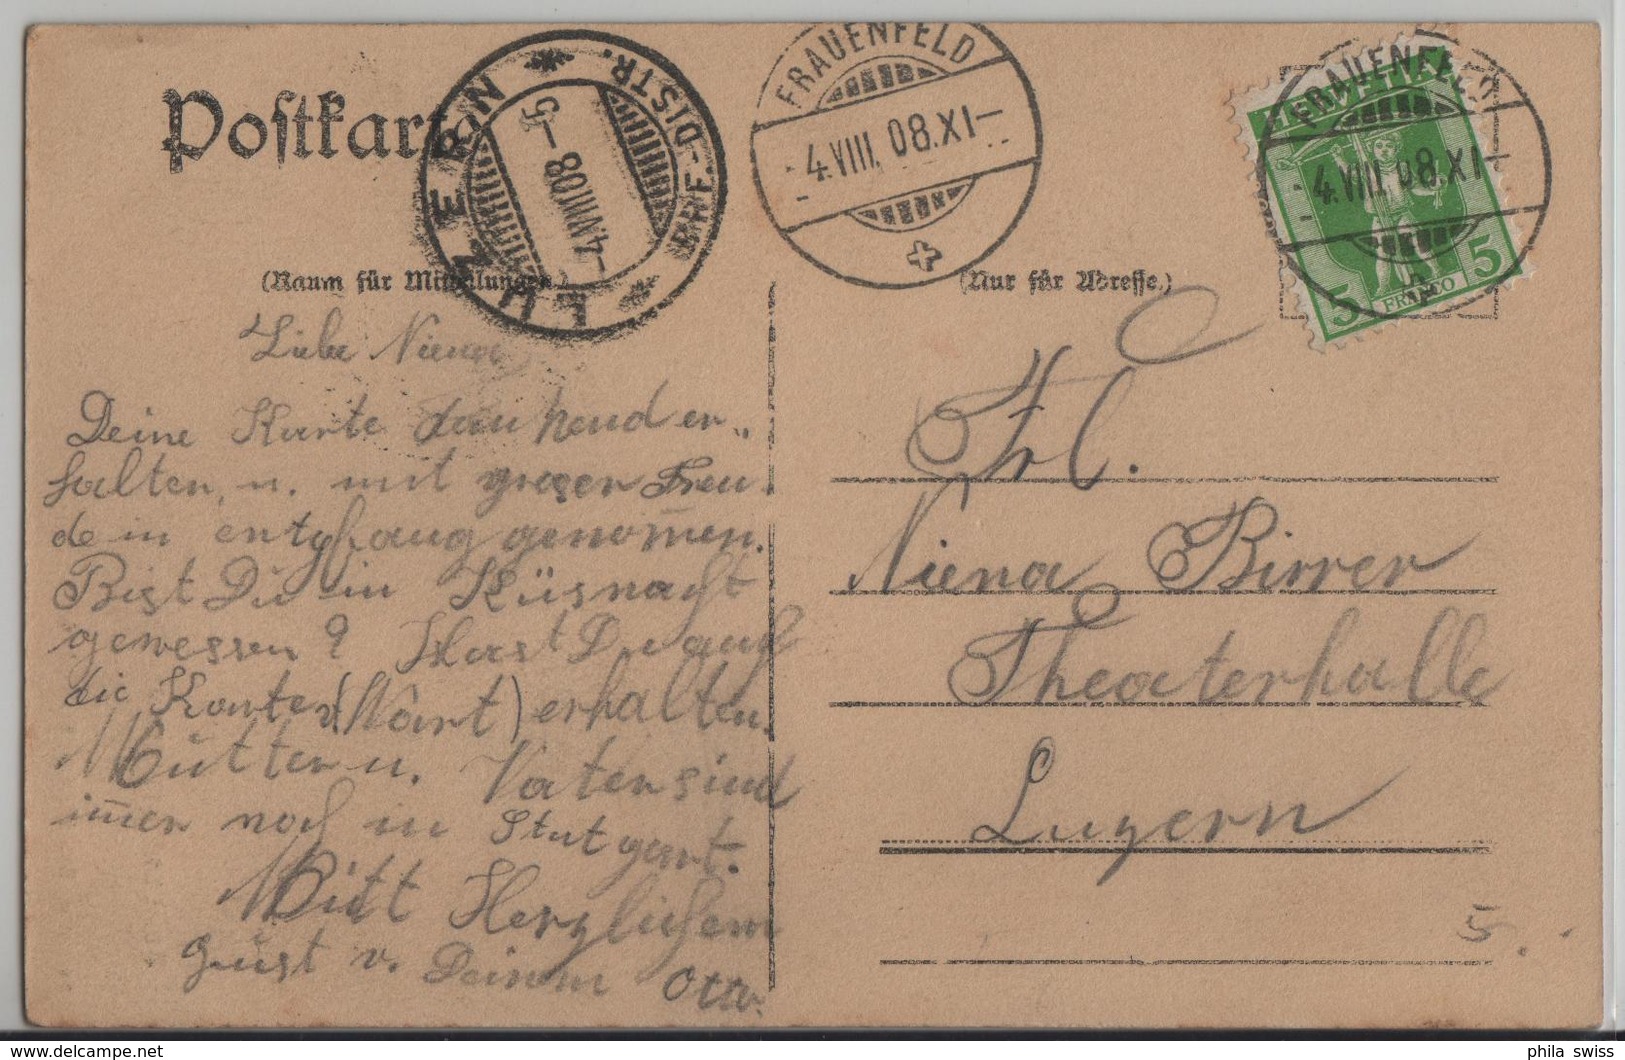 Postkarte
LUZERN BRF.-DISTR.
-4.VIII.08-5
FRAUENFELD
4.VIII.08.XI-
FRAUENFELD
4.VIII.08.XI-
HELVETIA
5 FRANCO 5
(Raum für Mitteilungen.)
(Nur für Adresse.)
Liebe Niena
Deine Karte dankend er„
halten, u. mit groser Freu
de in entpfang genom̅en.
Bist Du in Küsnacht
gewessen? Hast Du auch
die Karte v. (Nârt) erhalten.
Mutter u. Vater sind
im̅er noch in Stutgart.
Mitt Herzlichem
Grust v. Deinem Otto.
Frl.
Niena Birrer
Theaterhalle
Luzern
5.
phila_swiss